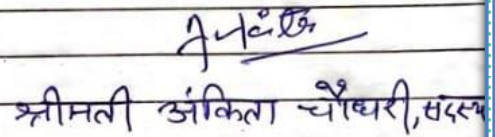 श्रीमती अंकिता चौधरी, सदस्य